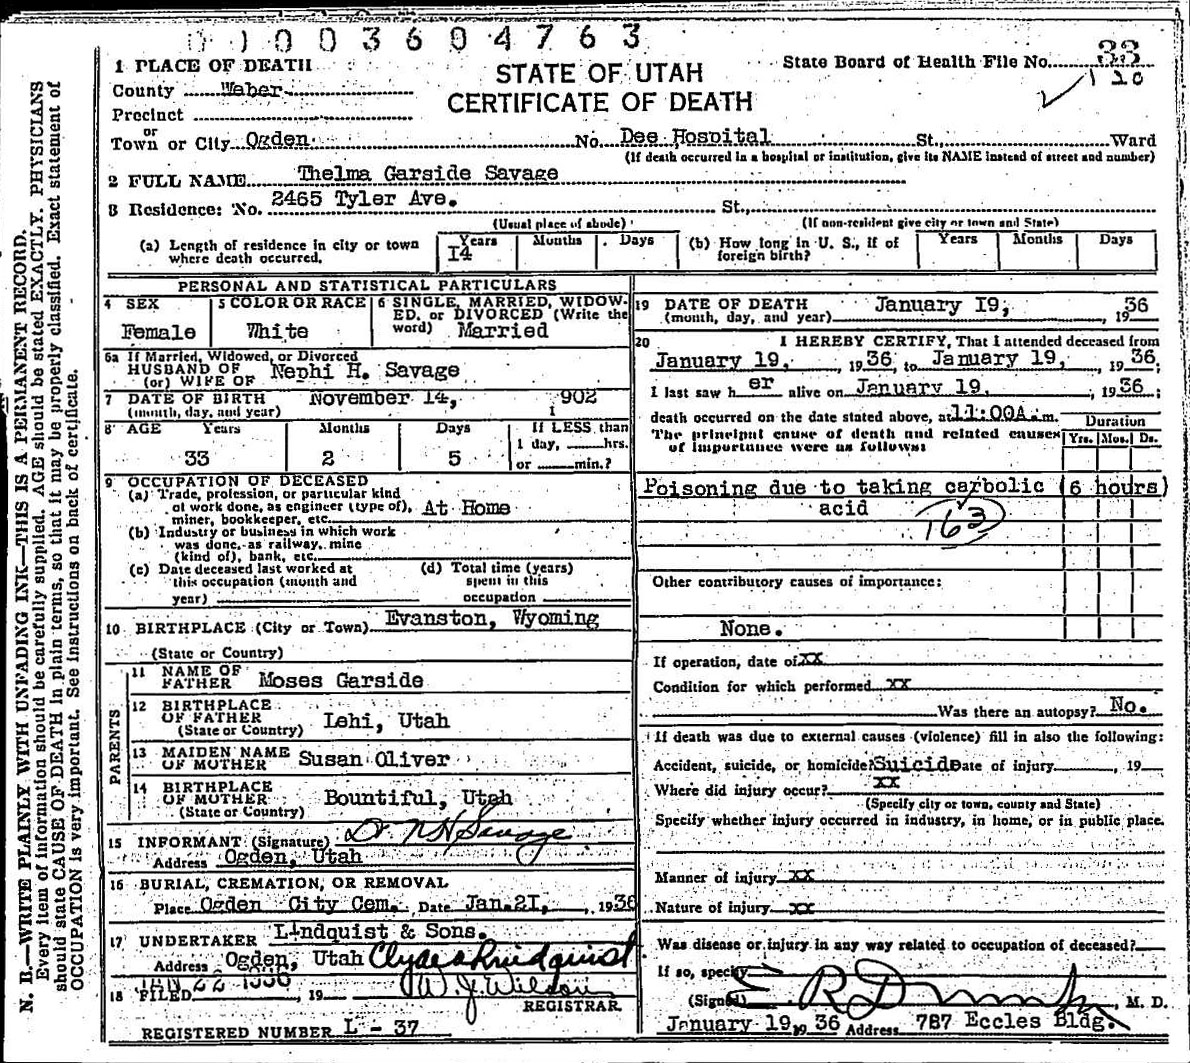 0 1 0 0 3 6 0 4 7 6 3
STATE OF UTAH
CERTIFICATE OF DEATH
State Board of Health File No. 33
120
1 PLACE OF DEATH
County Weber
Precinct
or
Town or City Ogden No. Dee Hospital St., Ward
(If death occurred in a hospital or institution, give its NAME instead of street and number)
2 FULL NAME Thelma Garside Savage
3 Residence: No. 2465 Tyler Ave. St.,
(Usual place of abode) (If non-resident give city or town and State)
(a) Length of residence in city or town where death occurred. Years 14 Months Days
(b) How long in U. S., if of foreign birth? Years Months Days
PERSONAL AND STATISTICAL PARTICULARS
4 SEX Female
5 COLOR OR RACE White
6 SINGLE, MARRIED, WIDOWED, or DIVORCED (Write the word) Married
6a If Married, Widowed, or Divorced
HUSBAND OF
(or) WIFE OF Nephi H. Savage
7 DATE OF BIRTH
(month, day, and year) November 14, 1902
8 AGE Years Months Days If LESS than
1 day, hrs.
33 2 5 or min.?
9 OCCUPATION OF DECEASED
(a) Trade, profession, or particular kind
of work done, as engineer (type of), At Home
miner, bookkeeper, etc.
(b) Industry or business in which work
was done, as railway, mine
(kind of), bank, etc.
(c) Date deceased last worked at
this occupation (month and
year)
(d) Total time (years)
spent in this
occupation
10 BIRTHPLACE (City or Town) Evanston, Wyoming
(State or Country)
PARENTS
11 NAME OF
FATHER Moses Garside
12 BIRTHPLACE
OF FATHER Lehi, Utah
(State or Country)
13 MAIDEN NAME
OF MOTHER Susan Oliver
14 BIRTHPLACE
OF MOTHER Bountiful, Utah
(State or Country)
15 INFORMANT (Signature) Dr NH Savage
Address Ogden, Utah
16 BURIAL, CREMATION, OR REMOVAL
Place Ogden City Cem. Date Jan. 21, 1936
17 UNDERTAKER Lindquist & Sons.
Address Ogden, Utah Clyde Lindquist
JAN 22 1936
18 FILED , 19 W. J. Wilson
REGISTRAR
REGISTERED NUMBER L - 37
19 DATE OF DEATH January 19, 1936
(month, day, and year)
20 I HEREBY CERTIFY, That I attended deceased from
January 19, 1936, to January 19, 1936,
I last saw her alive on January 19, 1936;
death occurred on the date stated above, at 11:00A.m.
Duration
The principal cause of death and related causes Yrs. Mos. Ds.
of importance were as follows:
Poisoning due to taking carbolic (6 hours)
acid
163
Other contributory causes of importance:
None.
If operation, date of XX
Condition for which performed XX
Was there an autopsy? No.
If death was due to external causes (violence) fill in also the following:
Accident, suicide, or homicide? Suicide Date of injury , 19
Where did injury occur? XX
(Specify city or town, county and State)
Specify whether injury occurred in industry, in home, or in public place.
Manner of injury XX
Nature of injury XX
Was disease or injury in any way related to occupation of deceased?
If so, specify
(Signed) , M. D.
January 19, 1936 Address 787 Eccles Bldg.
N. B.—WRITE PLAINLY WITH UNFADING INK—THIS IS A PERMANENT RECORD.
Every item of information should be carefully supplied. AGE should be stated EXACTLY. PHYSICIANS
should state CAUSE OF DEATH in plain terms, so that it may be properly classified. Exact statement of
OCCUPATION is very important. See instructions on back of certificate.